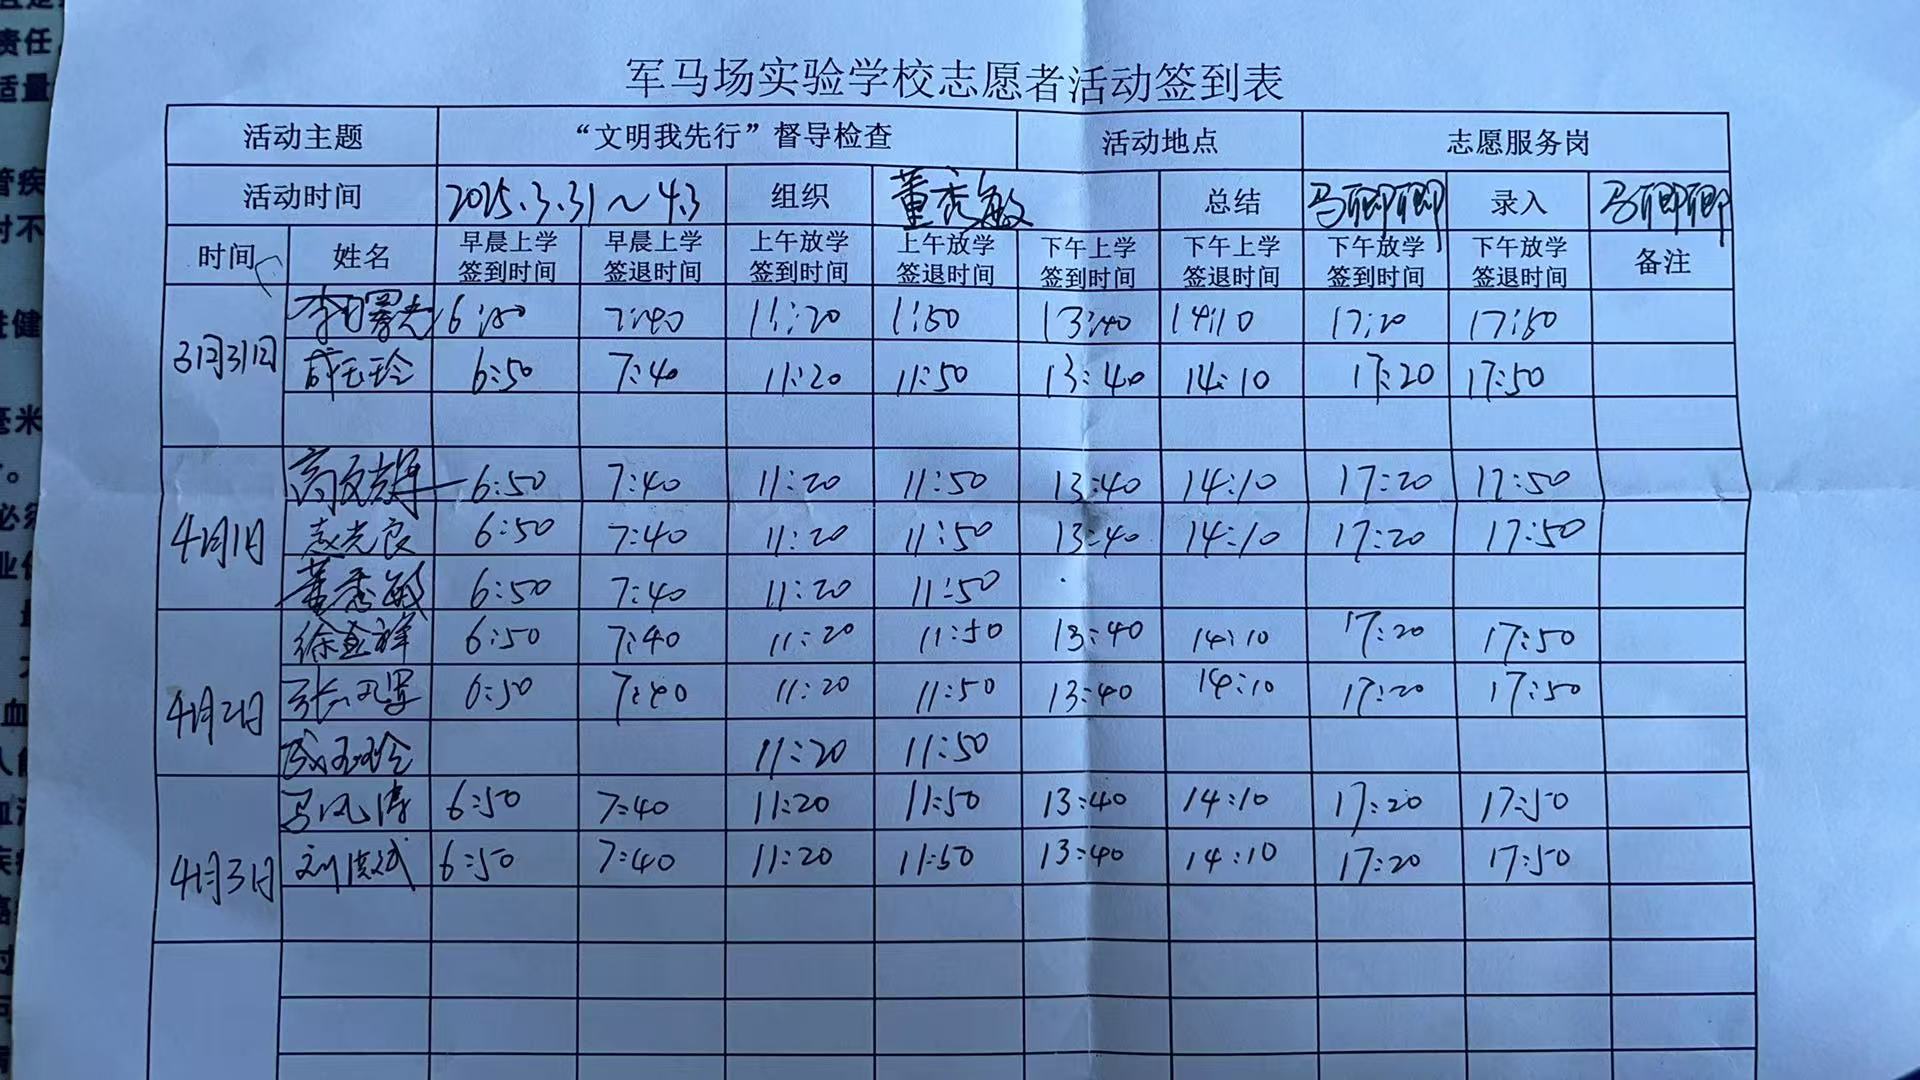 军马场实验学校志愿者活动签到表
活动主题 “文明我先行”督导检查 活动地点 志愿服务岗
活动时间 2025.3.31～4.3 组织 董秀敏 总结 马卿卿 录入 马卿卿
时间 姓名 早晨上学签到时间 早晨上学签退时间 上午放学签到时间 上午放学签退时间 下午上学签到时间 下午上学签退时间 下午放学签到时间 下午放学签退时间 备注
3月31日 李曙光 6:50 7:40 11:20 11:50 13:40 14:10 17:20 17:50
成玉玲 6:50 7:40 11:20 11:50 13:40 14:10 17:20 17:50
高文辉 6:50 7:40 11:20 11:50 13:40 14:10 17:20 17:50
4月1日 赵光良 6:50 7:40 11:20 11:50 13:40 14:10 17:20 17:50
董秀敏 6:50 7:40 11:20 11:50
徐直祥 6:50 7:40 11:20 11:50 13:40 14:10 17:20 17:50
4月2日 张 6:50 7:40 11:20 11:50 13:40 14:10 17:20 17:50
成玉玲 11:20 11:50
马风涛 6:50 7:40 11:20 11:50 13:40 14:10 17:20 17:50
4月3日 刘洪斌 6:50 7:40 11:20 11:50 13:40 14:10 17:20 17:50